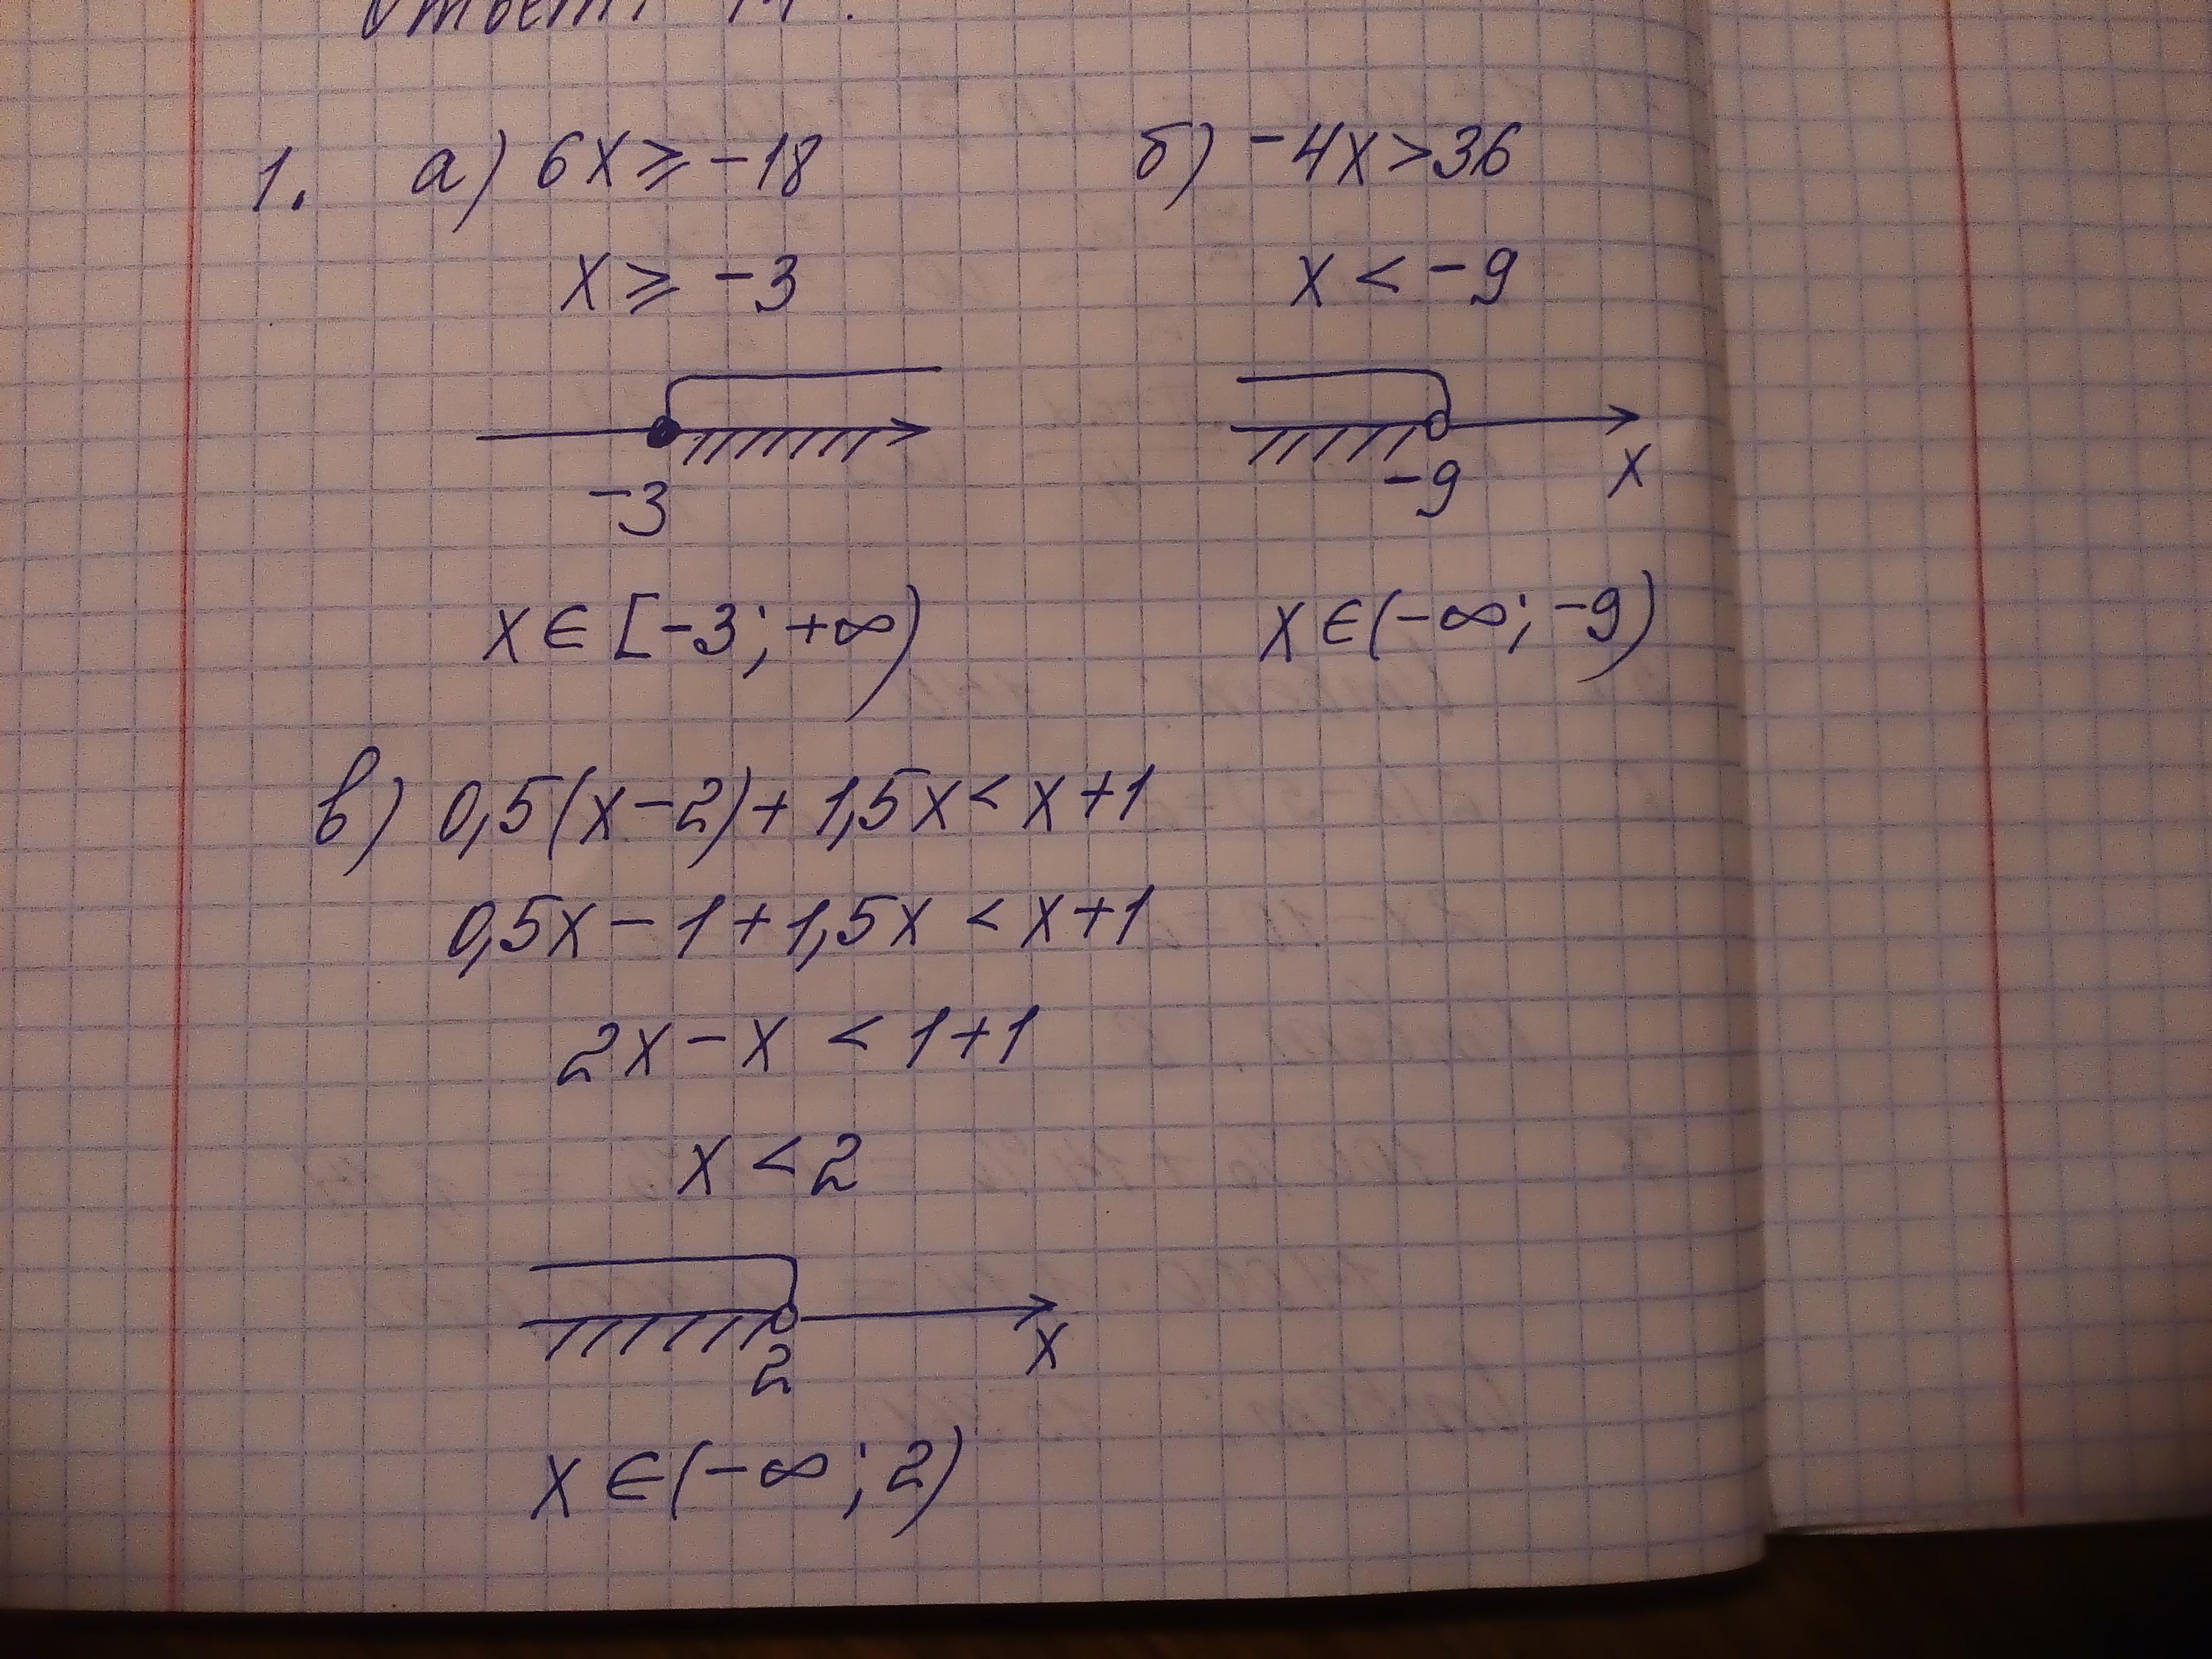 Ответ:
1. а) 6x ⩾ -18
x ⩾ -3
-3
x ∈ [-3; +∞)
б) -4x > 36
x < -9
-9 x
x ∈ (-∞; -9)
в) 0,5(x-2) + 1,5x < x+1
0,5x - 1 + 1,5x < x+1
2x - x < 1+1
x < 2
2 x
x ∈ (-∞; 2)